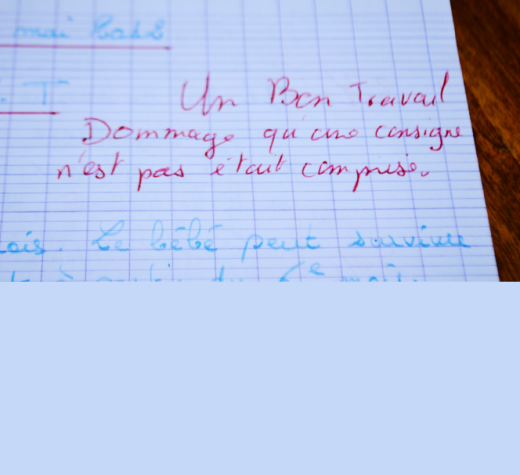 mai
. T
Un Bon Travail
Dommage qu'une consigne
n'est pas était comprise.
ois. Le bébé peut survivre
6e mois